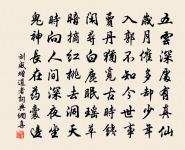 五雲深處有真仙
歲月催多却少年
入郭不知今世事
賣丹猶覓古時錢
閑尋白鹿眠瑤草
暗摘紅桃去洞天
時向人間深夜坐
鬼神長在藥囊邊
劉威 贈道者 詞典網書